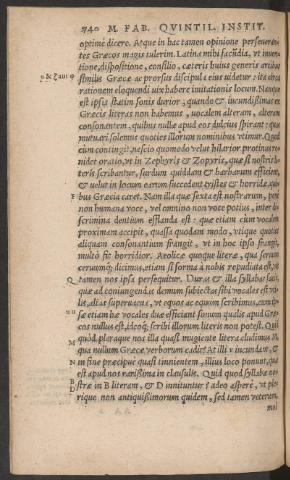 740 M. FAB. QVINTIL. INSTIT.
optime dicere. Atque in hac tamen opinione perseueran
tes Græcos magis tulerim. Latina mihi facūdia, ut inuen
tione, dispositione, consilio, cæteris huius generis artibus
similis Græcæ ac prorsus discipula eius uidetur: ita circa
rationem eloquendi uix habere imitationis locum. Nanque
est ipsis statim sonis durior, quando & iucundissimas ex
Græcis literas non habemus, uocalem alteram, alteram
consonantem, quibus nullæ apud eos dulcius spirant: quas
mutuari solemus quoties illorum nominibus utimur. Quod
cum contingit, nescio quomodo uelut hilarior protinus re
nidet oratio, ut in Zephyris & Zopyris, quæ si nostris li
teris scribantur, surdum quiddam & barbarum efficient,
& uelut in locum earum succedent tristes & horridæ, qui-
bus Græcia caret. Nam illa quæ sexta est nostrarum, penè
non humana uoce, uel omnino non uoce potius, inter di-
scrimina dentium efflanda est: quæ etiam cum uocalem
proximam accipit, quassa quodam modo, utique quoties
aliquam consonantium frangit, ut in hoc ipso frangit,
multò fit horridior. Aeolicæ quoque literæ, qua serum
ceruumq; dicimus, etiam si forma à nobis repudiata est, uis
tamen nos ipsa persequitur. Duras & illa syllabas facit,
quæ ad coniungendas demum subiectas sibi uocales est uti-
lis, aliàs superuacua, ut equos ac equum scribimus, cum ip-
sæ etiam hæ uocales duæ efficiant sonum qualis apud Græ-
cos nullus est, ideoq; scribi illorum literis non potest. Quid
quòd pleraque nos illa quasi mugiente litera cludimus M,
qua nullum Græcè uerborum cadit? At illi ν iucundam, &
in fine præcipuè quasi tinnientem, illius loco ponunt, quæ
est apud nos rarissima in clausulis. Quid quod syllabæ no-
stræ in B literam, & D innituntur? adeo asperè, ut ple-
rique non antiquissimorum quidem, sed tamen ueterum,
mol